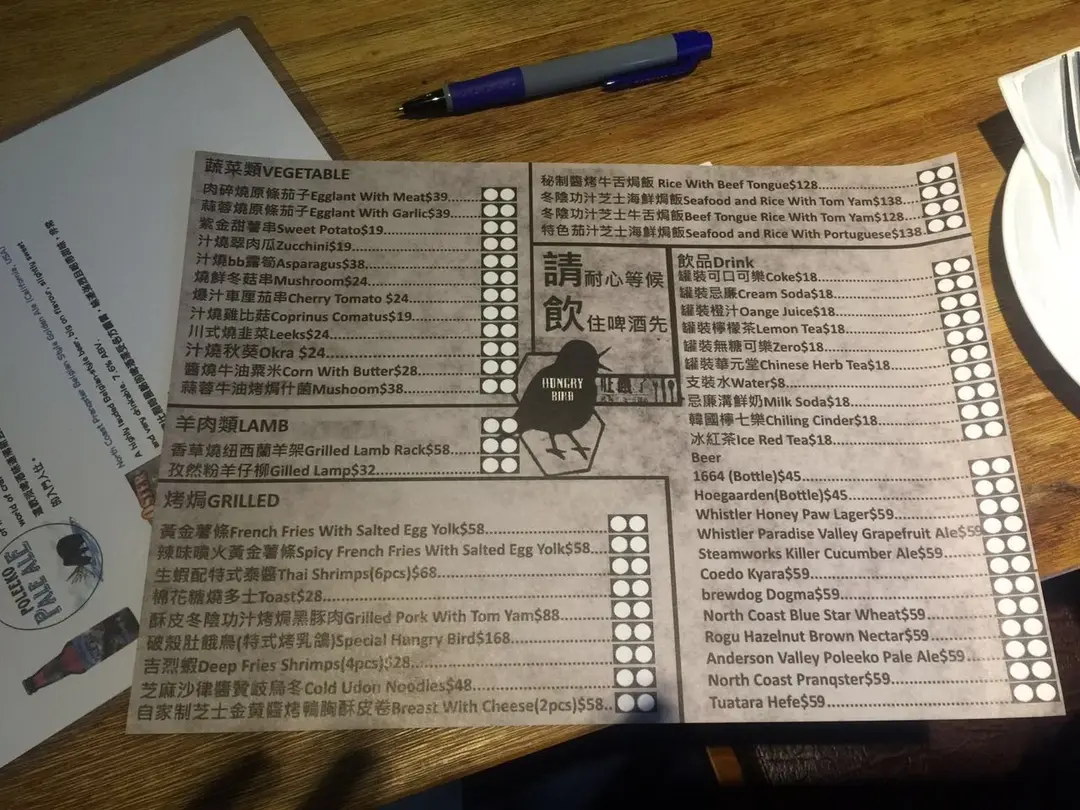 蔬菜類VEGETABLE
肉碎燒原條茄子Egglant With Meat$39
蒜蓉燒原條茄子Egglant With Garlic$39
紫金甜薯串Sweet Potato$19
汁燒翠肉瓜Zucchini$19
汁燒bb露筍Asparagus$38
燒鮮冬菇串Mushroom$24
爆汁車厘茄串Cherry Tomato $24
汁燒雞比菇Coprinus Comatus$19
川式燒韭菜Leeks$24
汁燒秋葵Okra $24
醬燒牛油粟米Corn With Butter$28
蒜蓉牛油烤焗什菌Mushoom$38
羊肉類LAMB
香草燒紐西蘭羊架Grilled Lamb Rack$58
孜然粉羊仔柳Gilled Lamp$32
烤焗GRILLED
黃金薯條French Fries With Salted Egg Yolk$58
辣味噴火黃金薯條Spicy French Fries With Salted Egg Yolk$58
生蝦配特式泰醬Thai Shrimps(6pcs)$68
棉花糖燒多士Toast$28
酥皮冬陰功汁烤焗黑豚肉Grilled Pork With Tom Yam$88
破殼肚餓鳥(特式烤乳鴿)Special Hungry Bird$168
吉烈蝦Deep Fries Shrimps(4pcs)$28
芝麻沙律醬贊岐烏冬Cold Udon Noodles$48
自家制芝士金黄醬烤鴨胸酥皮卷Breast With Cheese(2pcs)$58
秘制醬烤牛舌焗飯 Rice With Beef Tongue$128
冬陰功汁芝士海鮮焗飯Seafood and Rice With Tom Yam$138
冬陰功汁芝士牛舌焗飯Beef Tongue Rice With Tom Yam$128
特色茄汁芝士海鮮焗飯Seafood and Rice With Portuguese$138
請耐心等候
飲住啤酒先
HUNGRY
BIRD
飲品Drink
罐裝可口可樂Coke$18
罐裝忌廉Cream Soda$18
罐裝橙汁Oange Juice$18
罐裝檸檬茶Lemon Tea$18
罐裝無糖可樂Zero$18
罐裝華元堂Chinese Herb Tea$18
支裝水Water$8
忌廉溝鮮奶Milk Soda$18
韓國檸七樂Chiling Cinder$18
冰紅茶Ice Red Tea$18
Beer
1664 (Bottle)$45
Hoegaarden(Bottle)$45
Whistler Honey Paw Lager$59
Whistler Paradise Valley Grapefruit Ale$59
Steamworks Killer Cucumber Ale$59
Coedo Kyara$59
brewdog Dogma$59
North Coast Blue Star Wheat$59
Rogu Hazelnut Brown Nectar$59
Anderson Valley Poleeko Pale Ale$59
North Coast Pranqster$59
Tuatara Hefe$59
North Coast Pranqster Belgian Style Golden Ale (California, USA)
A highly lauded Belgian-style beer, big on flavour, slightly sweet
and very drinkable. 7.6% ABV.
POLEEKO
PALE ALE